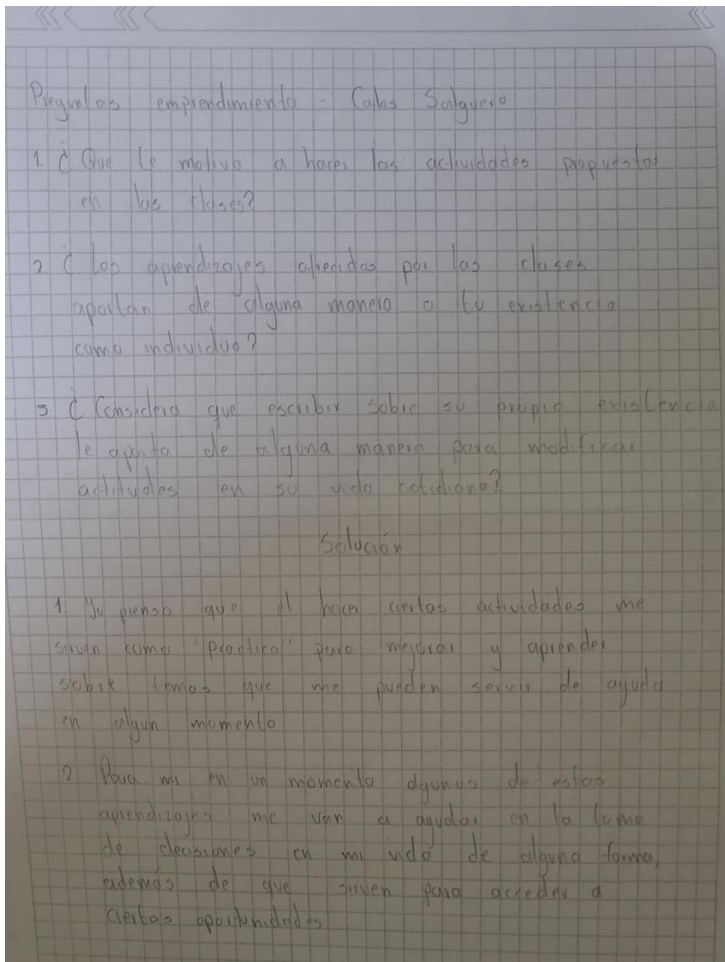 Preguntas emprendimiento - Calos Salguero
1 ¿ Que le motiva a hacer las actividades propuestas
en las clases?
2 ¿ Los aprendizajes ofrecidas por las clases
aportan de alguna manera a tu existencia
como individuo?
3 ¿ Considera que escribir sobre su propia existencia
le aporta de alguna manera para modificar
actitudes en su vida cotidiana?
Solución
1. Yo pienso que el hacer ciertas actividades me
sirven como "practica" para mejorar y aprender
sobre temas que me pueden servir de ayuda
en algun momento
2 Para mi en un momento algunos de estos
aprendizajes me van a ayudar en la toma
de decisiones en mi vida de alguna forma,
además de que sirven para acceder a
ciertas oportunidades